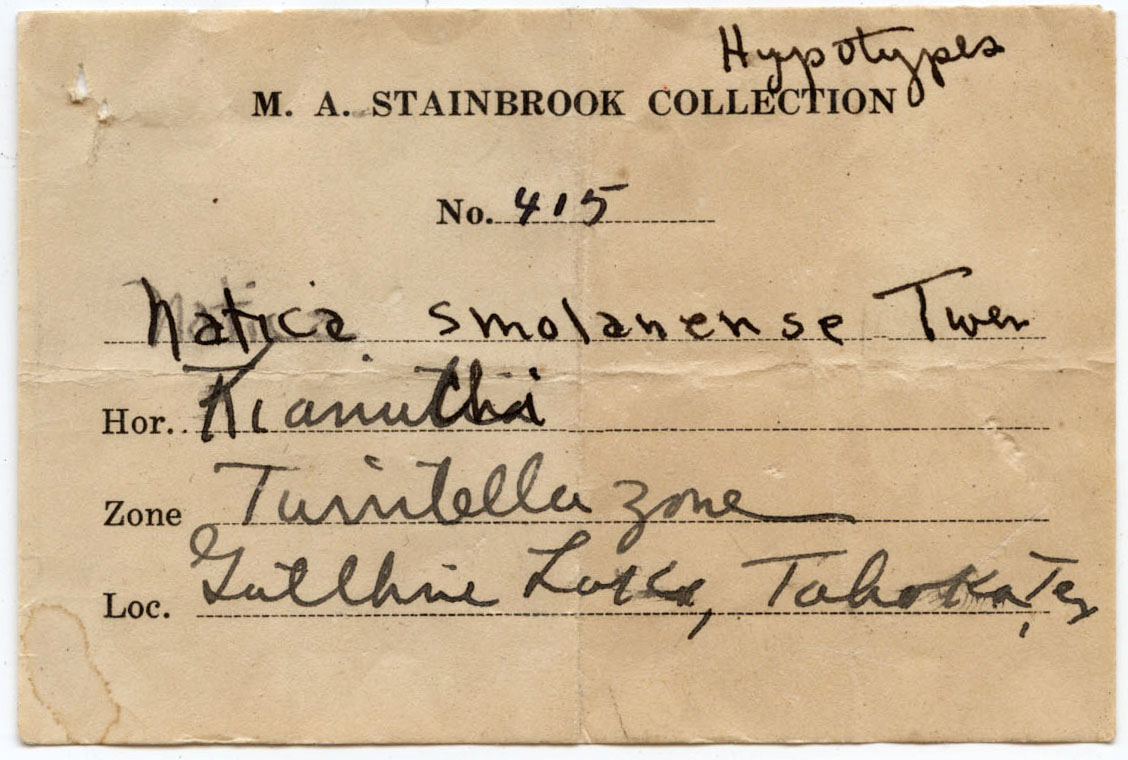 Hypotypes
M. A. STAINBROOK COLLECTION
No. 415
Natica smolanense Twen
Hor. Kiamichi
Zone Turritella zone
Loc. Guthrie Lake, Tahoka, Tex